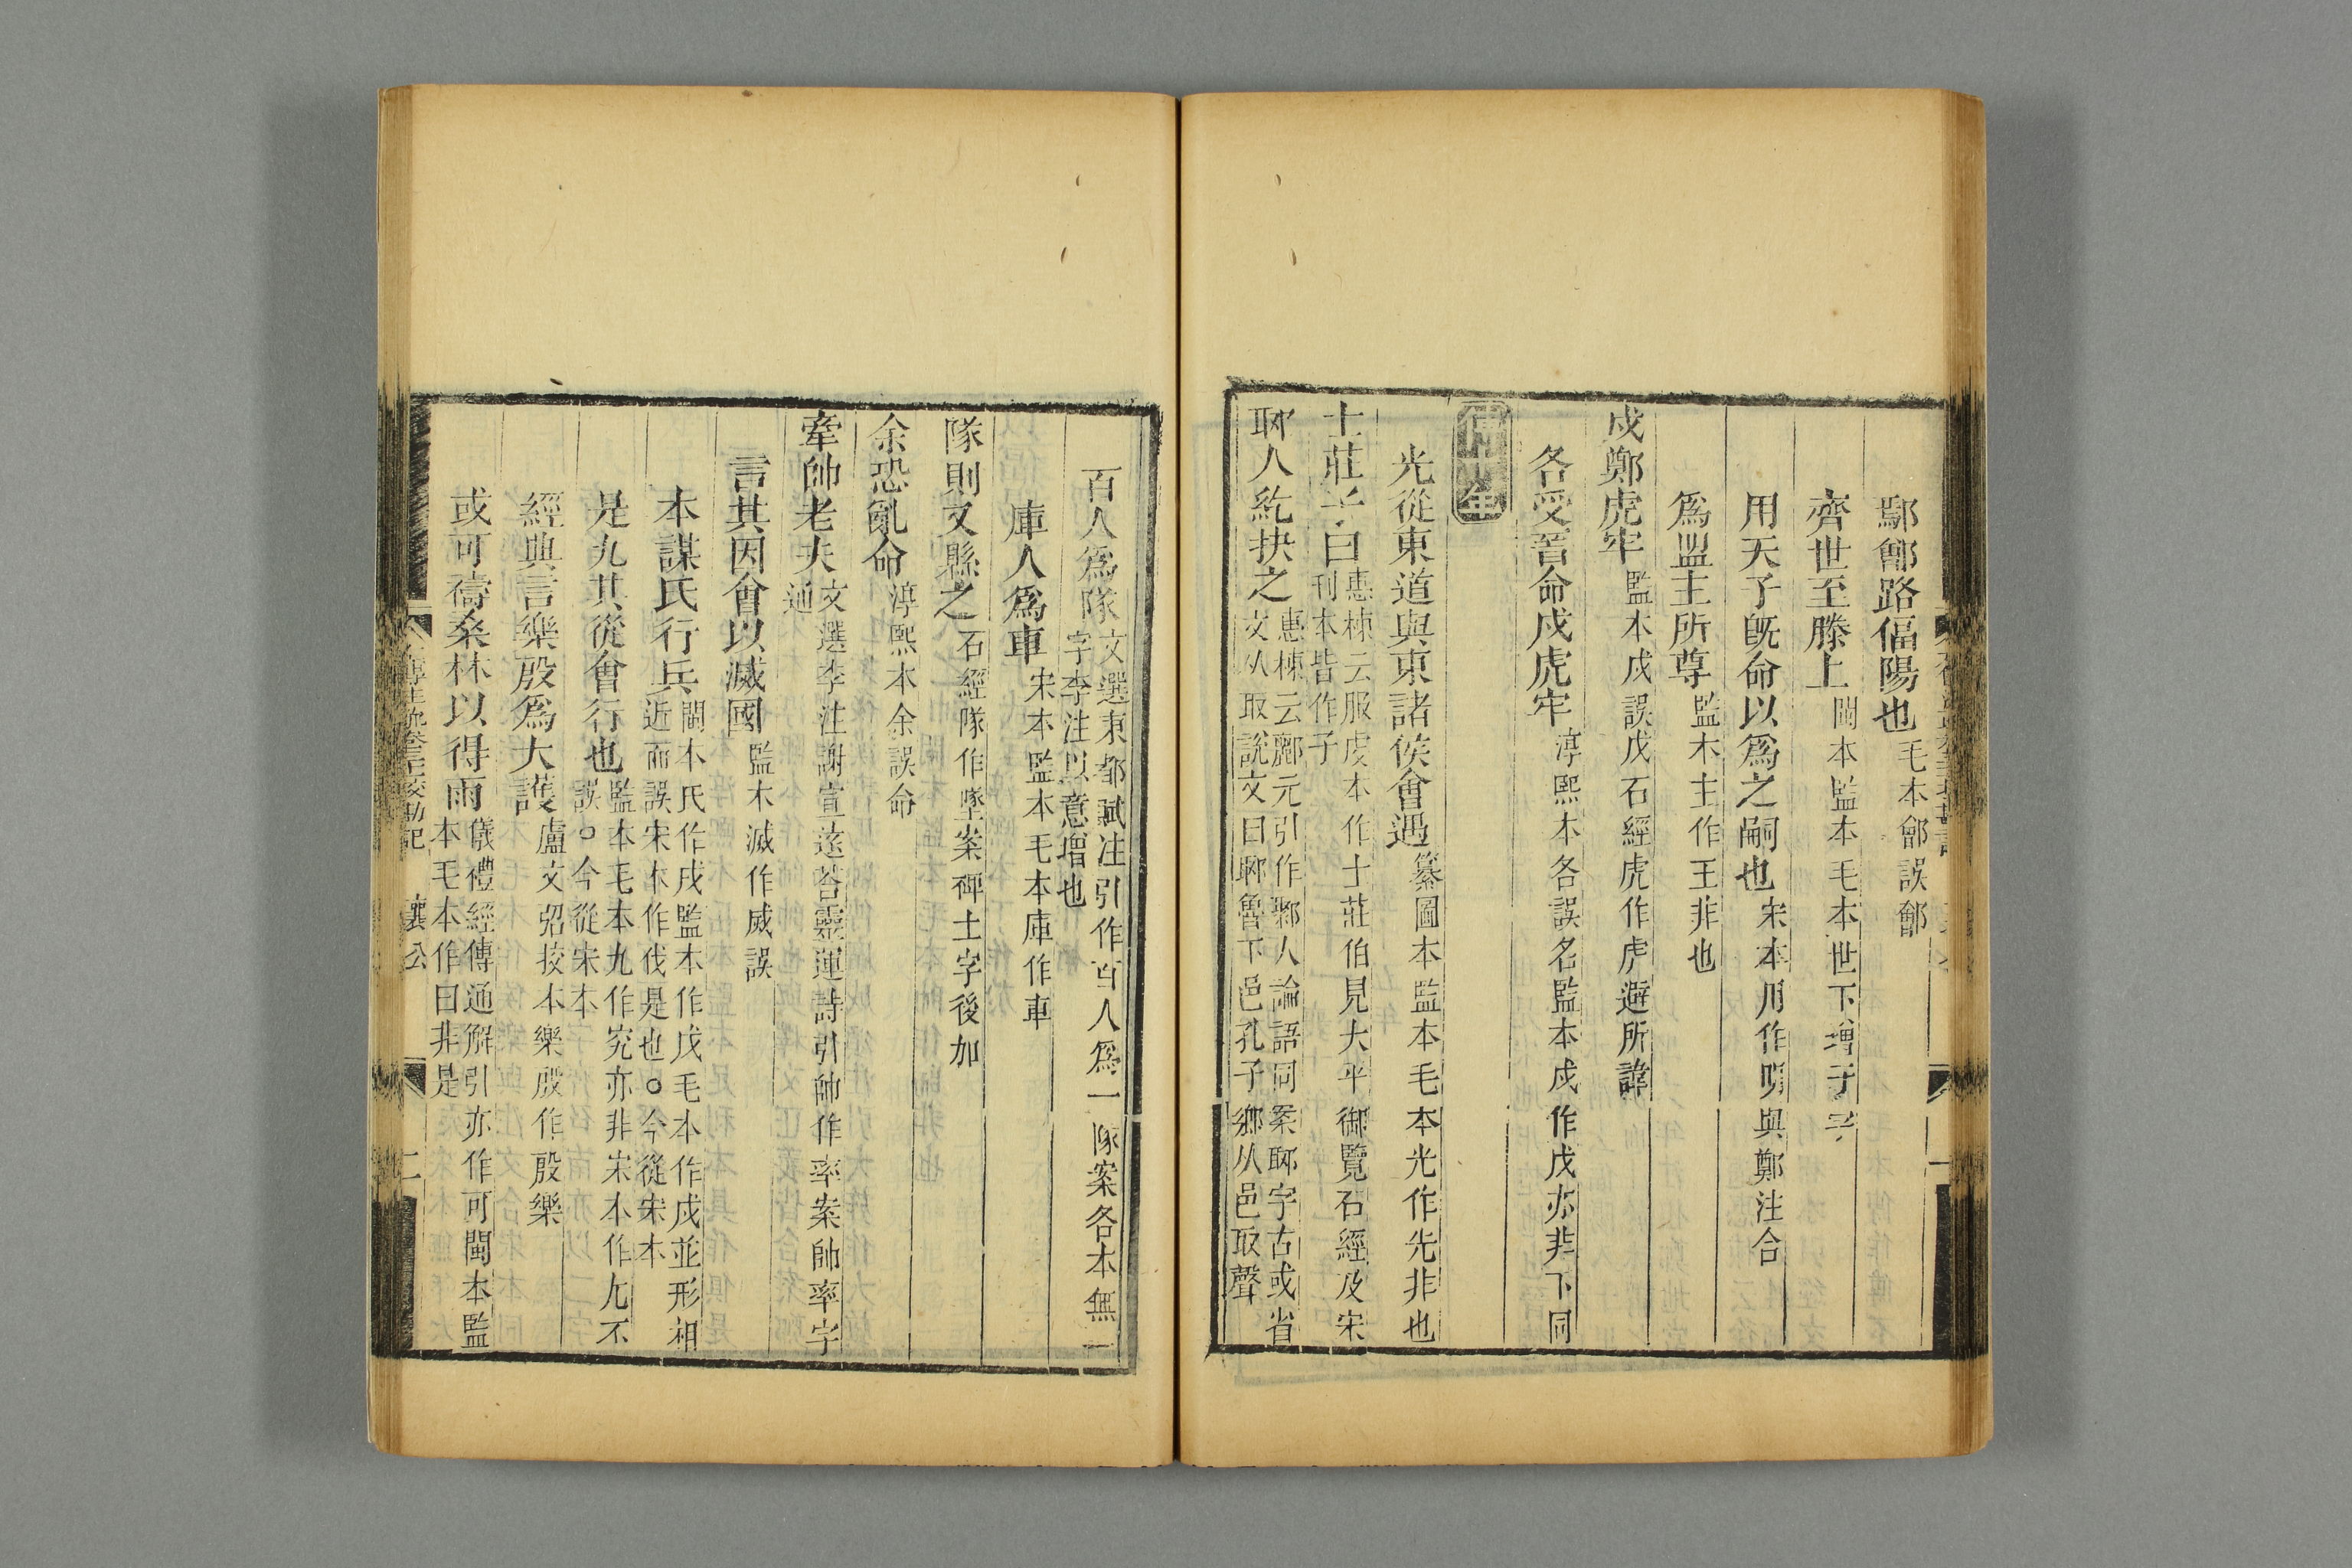 鄢鄶路偪陽也毛本鄶誤鄫
齊世至滕上閩本監本毛本世下增子字
用天子旣命以爲之嗣也宋本用作明與鄭注合
爲盟主所尊監本主作王非也
戍鄭虎牢監本戍誤戊石經虎作虍避所諱
各受晉命戍虎牢淳熙本各誤名監本戍作戊亦非下同
傳十年
光從東道與東諸侯會遇纂圖本監本毛本光作先非也
士莊子曰惠棟云服虔本作士莊伯見大平御覽石經及宋
刊本皆作子
耶人紇抉之惠棟云酈元引作鄹人論語同案耶字古或省
文从取說文曰郰魯下邑孔子鄉从邑取聲
百人爲隊文選東都賦注引作百人爲一隊案各本無一
字李注以意增也
庫人爲車宋本監本毛本庫作車
隊則又縣之石經隊作墜案碑土字後加
余恐亂命淳熙本余誤命
牽帥老夫文選李注謝宣遠荅靈運詩引帥作率案帥率字
通
言其因會以滅國監本滅作威誤
本謀氏行兵閩本氏作戌監本作戊毛本作戍並形相
近而誤宋本作伐是也○今從宋本
是九其從會行也監本毛本九作究亦非宋本作尢不
誤○今從宋本
經典言樂殷爲大護盧文弨挍本樂殷作殷樂
或可禱桑林以得雨儀禮經傳通解引亦作可閩本監
本毛本作曰非是
襄公
二